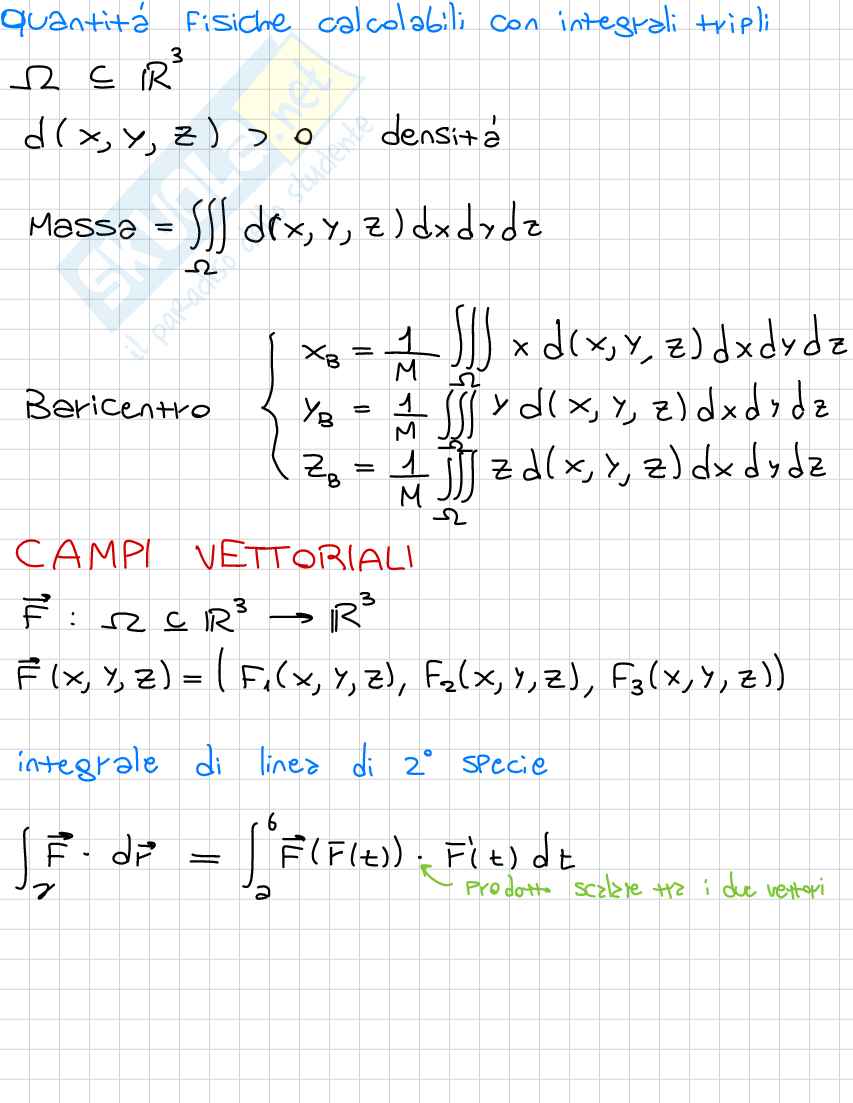 Quantitá Fisiche calcolabili con integrali tripli
Ω ⊆ ℝ³
d(x, y, z) > 0 densitá
Massa = ∭_Ω d(x, y, z) dx dy dz
Baricentro { x_B = 1/M ∭_Ω x d(x, y, z) dx dy dz
y_B = 1/M ∭_Ω y d(x, y, z) dx dy dz
z_B = 1/M ∭_Ω z d(x, y, z) dx dy dz
CAMPI VETTORIALI
F⃗ : Ω ⊆ ℝ³ → ℝ³
F⃗(x, y, z) = (F₁(x, y, z), F₂(x, y, z), F₃(x, y, z))
integrale di linea di 2° specie
∫_γ F⃗ · dr⃗ = ∫_a^b F⃗(r̄(t)) · r̄'(t) dt
prodotto scalare tra i due vettori
SKUOLA.net
il paradiso dello studente